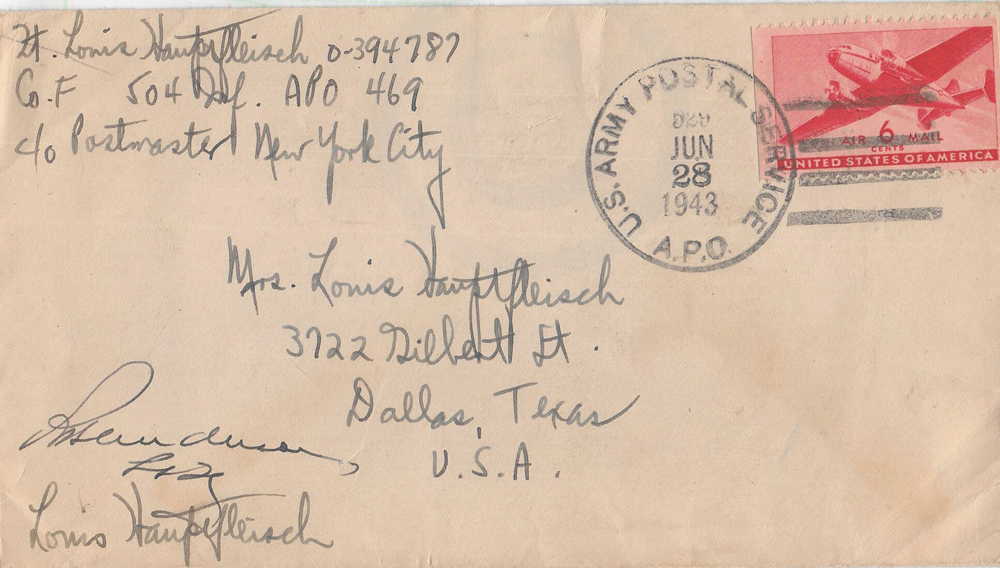 Lt. Louis Hauptfleisch O-394787
Co. F 504 Inf. APO 469
c/o Postmaster New York City
U.S. ARMY POSTAL SERVICE
JUN
28
1943
A.P.O.
AIR 6 MAIL
CENTS
UNITED STATES OF AMERICA
Mrs. Louis Hauptfleisch
3722 Gilbert St.
Dallas, Texas
U.S.A.
Louis Hauptfleisch